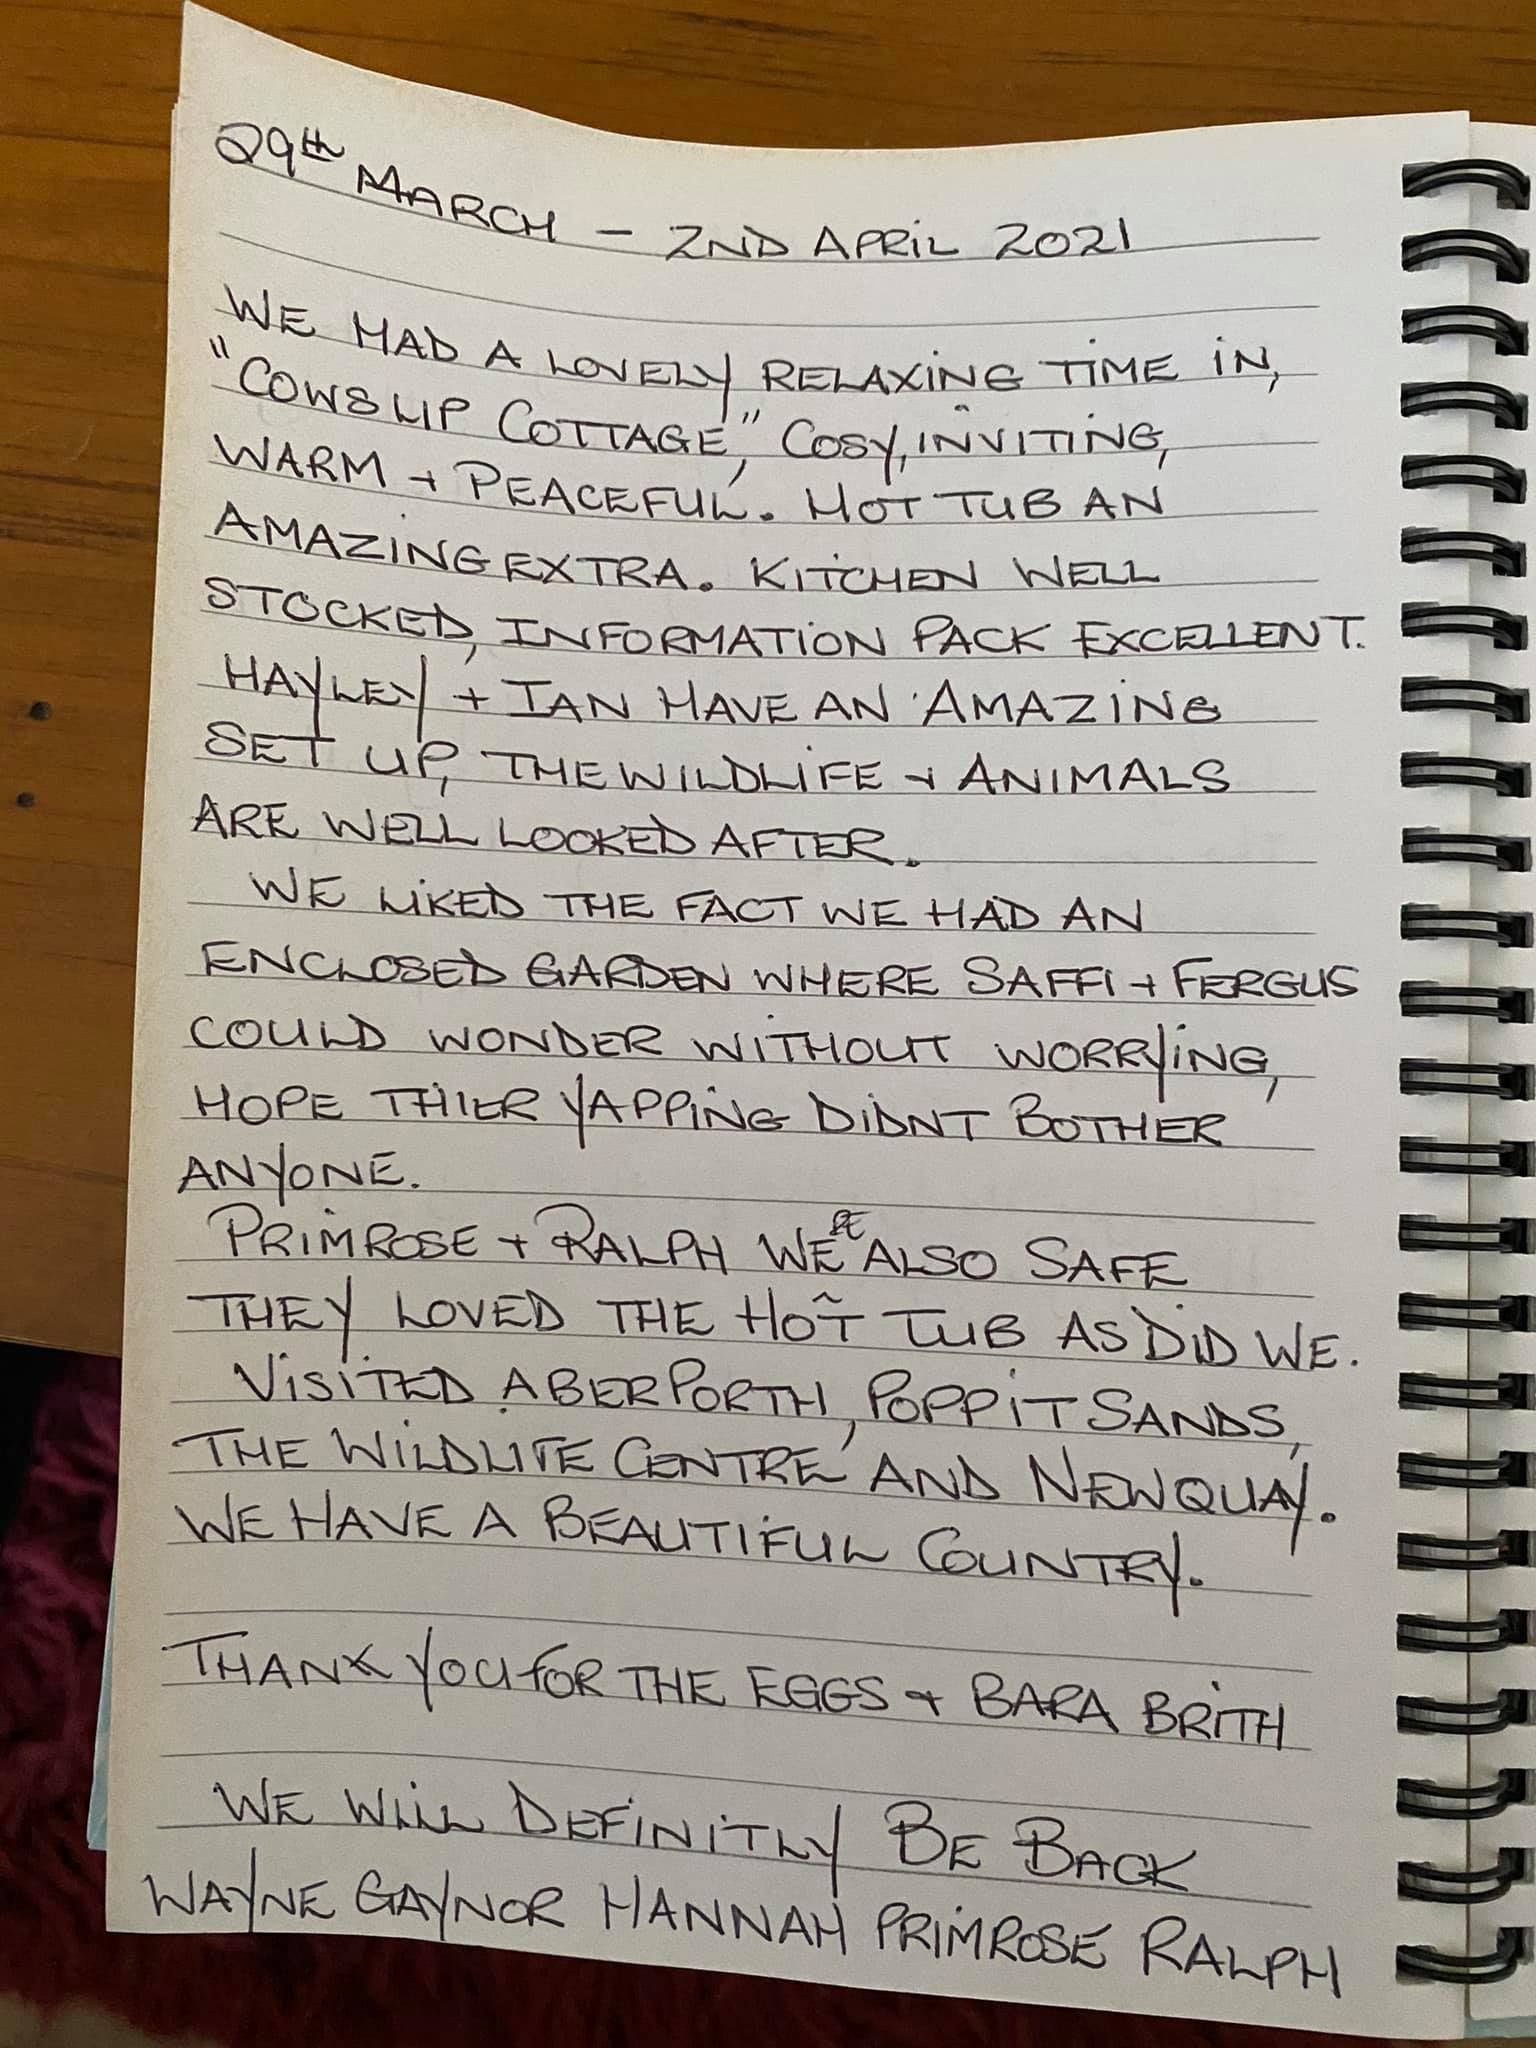 29th MARCH - 2ND APRIL 2021
WE HAD A LOVELY RELAXING TIME IN,
"COWSLIP COTTAGE," COSY, INVITING,
WARM + PEACEFUL. HOT TUB AN
AMAZING EXTRA. KITCHEN WELL
STOCKED, INFORMATION PACK EXCELLENT.
HAYLEY + IAN HAVE AN AMAZING
SET UP, THE WILDLIFE + ANIMALS
ARE WELL LOOKED AFTER.
WE LIKED THE FACT WE HAD AN
ENCLOSED GARDEN WHERE SAFFI + FERGUS
COULD WONDER WITHOUT WORRYING,
HOPE THIER YAPPING DIDNT BOTHER
ANYONE.
PRIMROSE + RALPH WERE ALSO SAFE
THEY LOVED THE HOT TUB AS DID WE.
VISITED ABERPORTH, POPPIT SANDS,
THE WILDLIFE CENTRE AND NEWQUAY.
WE HAVE A BEAUTIFUL COUNTRY.
THANK YOU FOR THE EGGS + BARA BRITH
WE WILL DEFINITLY BE BACK
WAYNE GAYNOR HANNAH PRIMROSE RALPH